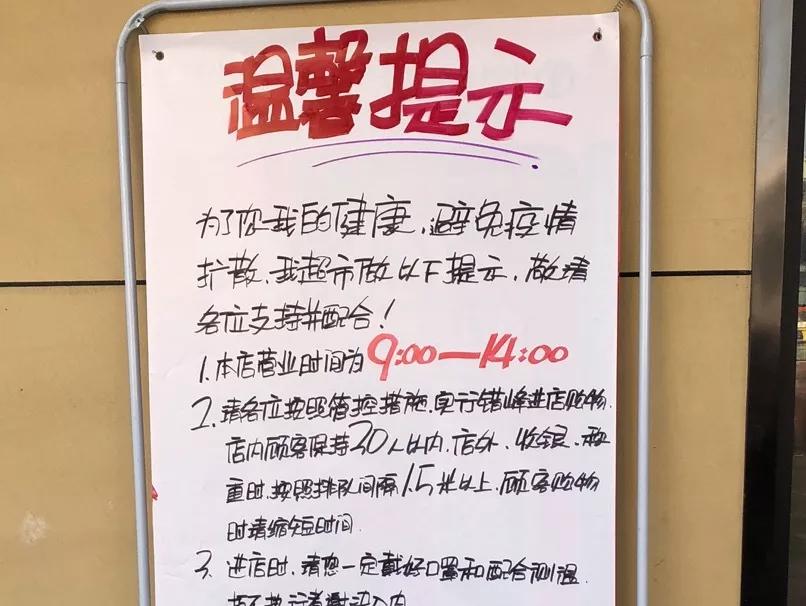 温馨提示
为了您我的健康,避免疫情
扩散,我超市做以下提示,敬请
各位支持并配合!
1.本店营业时间为9:00—14:00
2.请各位按照管控措施,实行错峰进店购物.
店内顾客保持20人以内,店外、收银、称
重时,按照排队间隔1.5米以上,顾客购物
时请缩短时间.
3.进店时,请您一定戴好口罩和配合测温.
若不执行者谢绝入内